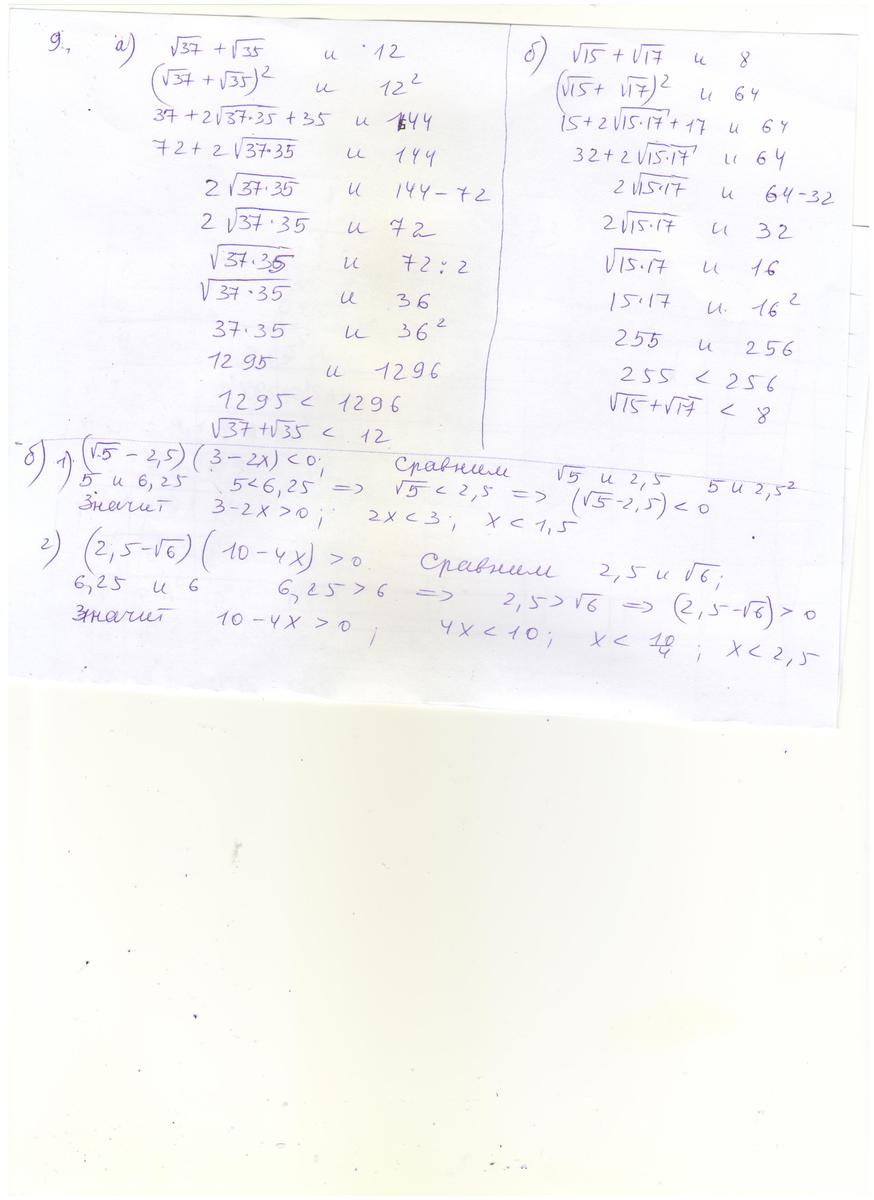 9., а) √37 + √35 и 12
(√37 + √35)² и 12²
37 + 2√37·35 + 35 и 144
72 + 2√37·35 и 144
2√37·35 и 144 - 72
2√37·35 и 72
√37·35 и 72 : 2
√37·35 и 36
37·35 и 36²
1295 и 1296
1295 < 1296
√37 + √35 < 12
б) √15 + √17 и 8
(√15 + √17)² и 64
15 + 2√15·17 + 17 и 64
32 + 2√15·17 и 64
2√15·17 и 64 - 32
2√15·17 и 32
√15·17 и 16
15·17 и 16²
255 и 256
255 < 256
√15 + √17 < 8
б) 1) (√5 - 2,5)(3 - 2x) < 0; Сравним √5 и 2,5 5 и 2,5²
5 и 6,25 5 < 6,25 => √5 < 2,5 => (√5 - 2,5) < 0
Значит 3 - 2x > 0; 2x < 3; x < 1,5
г) (2,5 - √6)(10 - 4x) > 0 Сравним 2,5 и √6;
6,25 и 6 6,25 > 6 => 2,5 > √6 => (2,5 - √6) > 0
Значит 10 - 4x > 0; 4x < 10; x < 10/4; x < 2,5